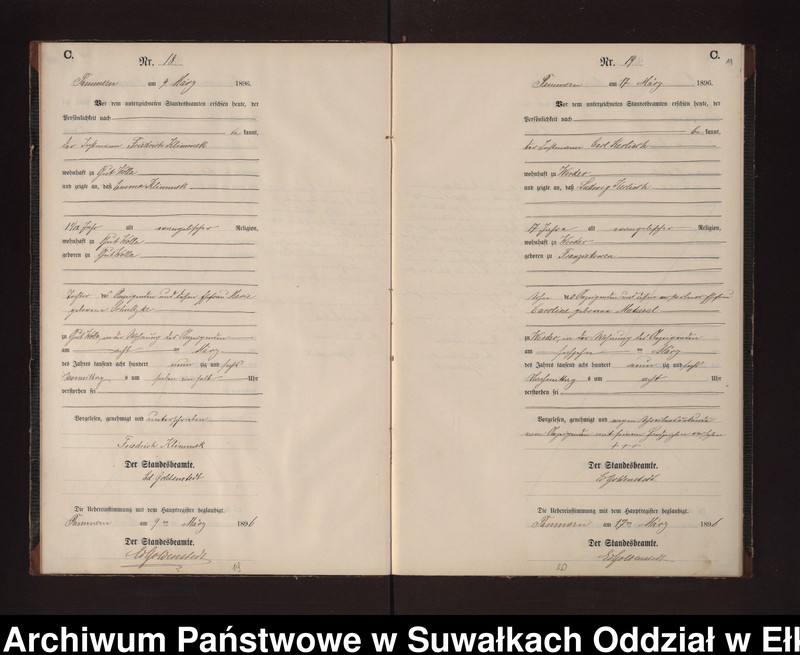 C.
Nr. 18
am 9 März 1896.
Vor dem unterzeichneten Standesbeamten erschien heute, der
Persönlichkeit nach
be kannt,
der Friedrich Klimmek
wohnhaft zu Gut Wolla
und zeigte an, daß Emma Klimmek
alt evangelischer Religion,
wohnhaft zu Gut Wolla
geboren zu Gut Wolla
Tochter des Anzeigenden und dessen Ehefrau Marie
geborene
zu Gut Wolla, in der Wohnung des Anzeigenden
am acht ten März
des Jahres tausend acht hundert neun zig und sechs
Vormittag s um sieben ein halb Uhr
verstorben sei
Vorgelesen, genehmigt und unterschrieben
Friedrich Klimmek
Der Standesbeamte.
Ed Goldenstedt
Die Uebereinstimmung mit dem Hauptregister beglaubigt.
am 9ten März 1896
Der Standesbeamte.
Ed Goldenstedt
19
C.
Nr. 19
am 17 März 1896.
Vor dem unterzeichneten Standesbeamten erschien heute, der
Persönlichkeit nach
be kannt,
der Carl
wohnhaft zu Werder
und zeigte an, daß Ludwig
17 Jahre alt evangelischer Religion,
wohnhaft zu Werder
geboren zu Franziskowen
Sohn des Anzeigenden und seiner Ehefrau
Caroline geborene
zu Werder, in der Wohnung des Anzeigenden
am sechzehn ten März
des Jahres tausend acht hundert neun zig und sechs
Nachmittag s um acht Uhr
verstorben sei
Vorgelesen, genehmigt und wegen
vom Anzeigenden mit seinem Handzeichen versehen
+ + +
Der Standesbeamte.
Ed Goldenstedt
Die Uebereinstimmung mit dem Hauptregister beglaubigt.
am 17ten März 1896
Der Standesbeamte.
Ed Goldenstedt
Archiwum Państwowe w Suwałkach Oddział w Ełk